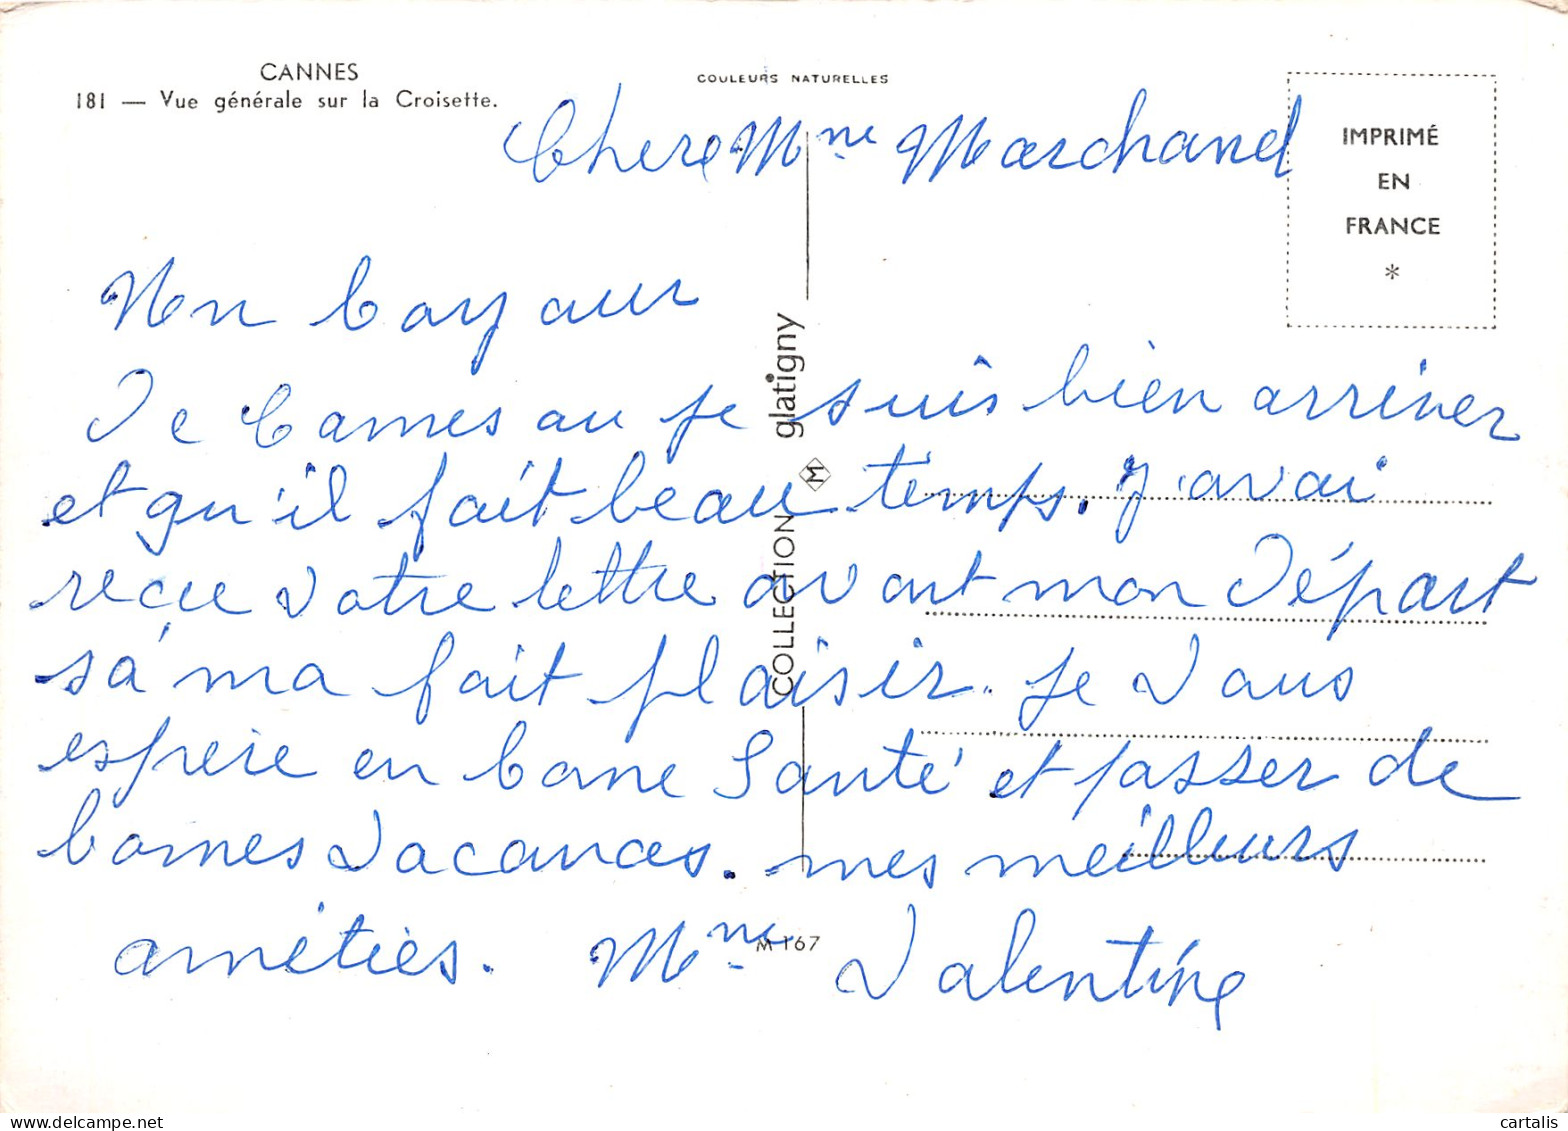 CANNES
181 — Vue générale sur la Croisette.
COULEURS NATURELLES
IMPRIMÉ
EN
FRANCE
*
Chere Mme Marchand
Un bonjour
De Cannes au je suis bien arriver
et qu'il fait beau temps. J'avai
reçue votre lettre avant mon Départ
sa ma fait plaisir. Je vous
espere en bone Santé et passer de
bonnes vacances. mes meilleurs
amétiés. Mme Valentine
COLLECTION M glatigny
M 167
www.delcampe.net
cartalis